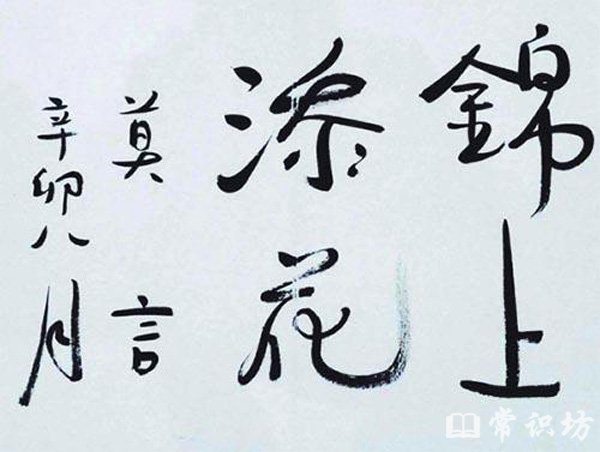 錦上
添花
莫言
辛卯八月
常识坊